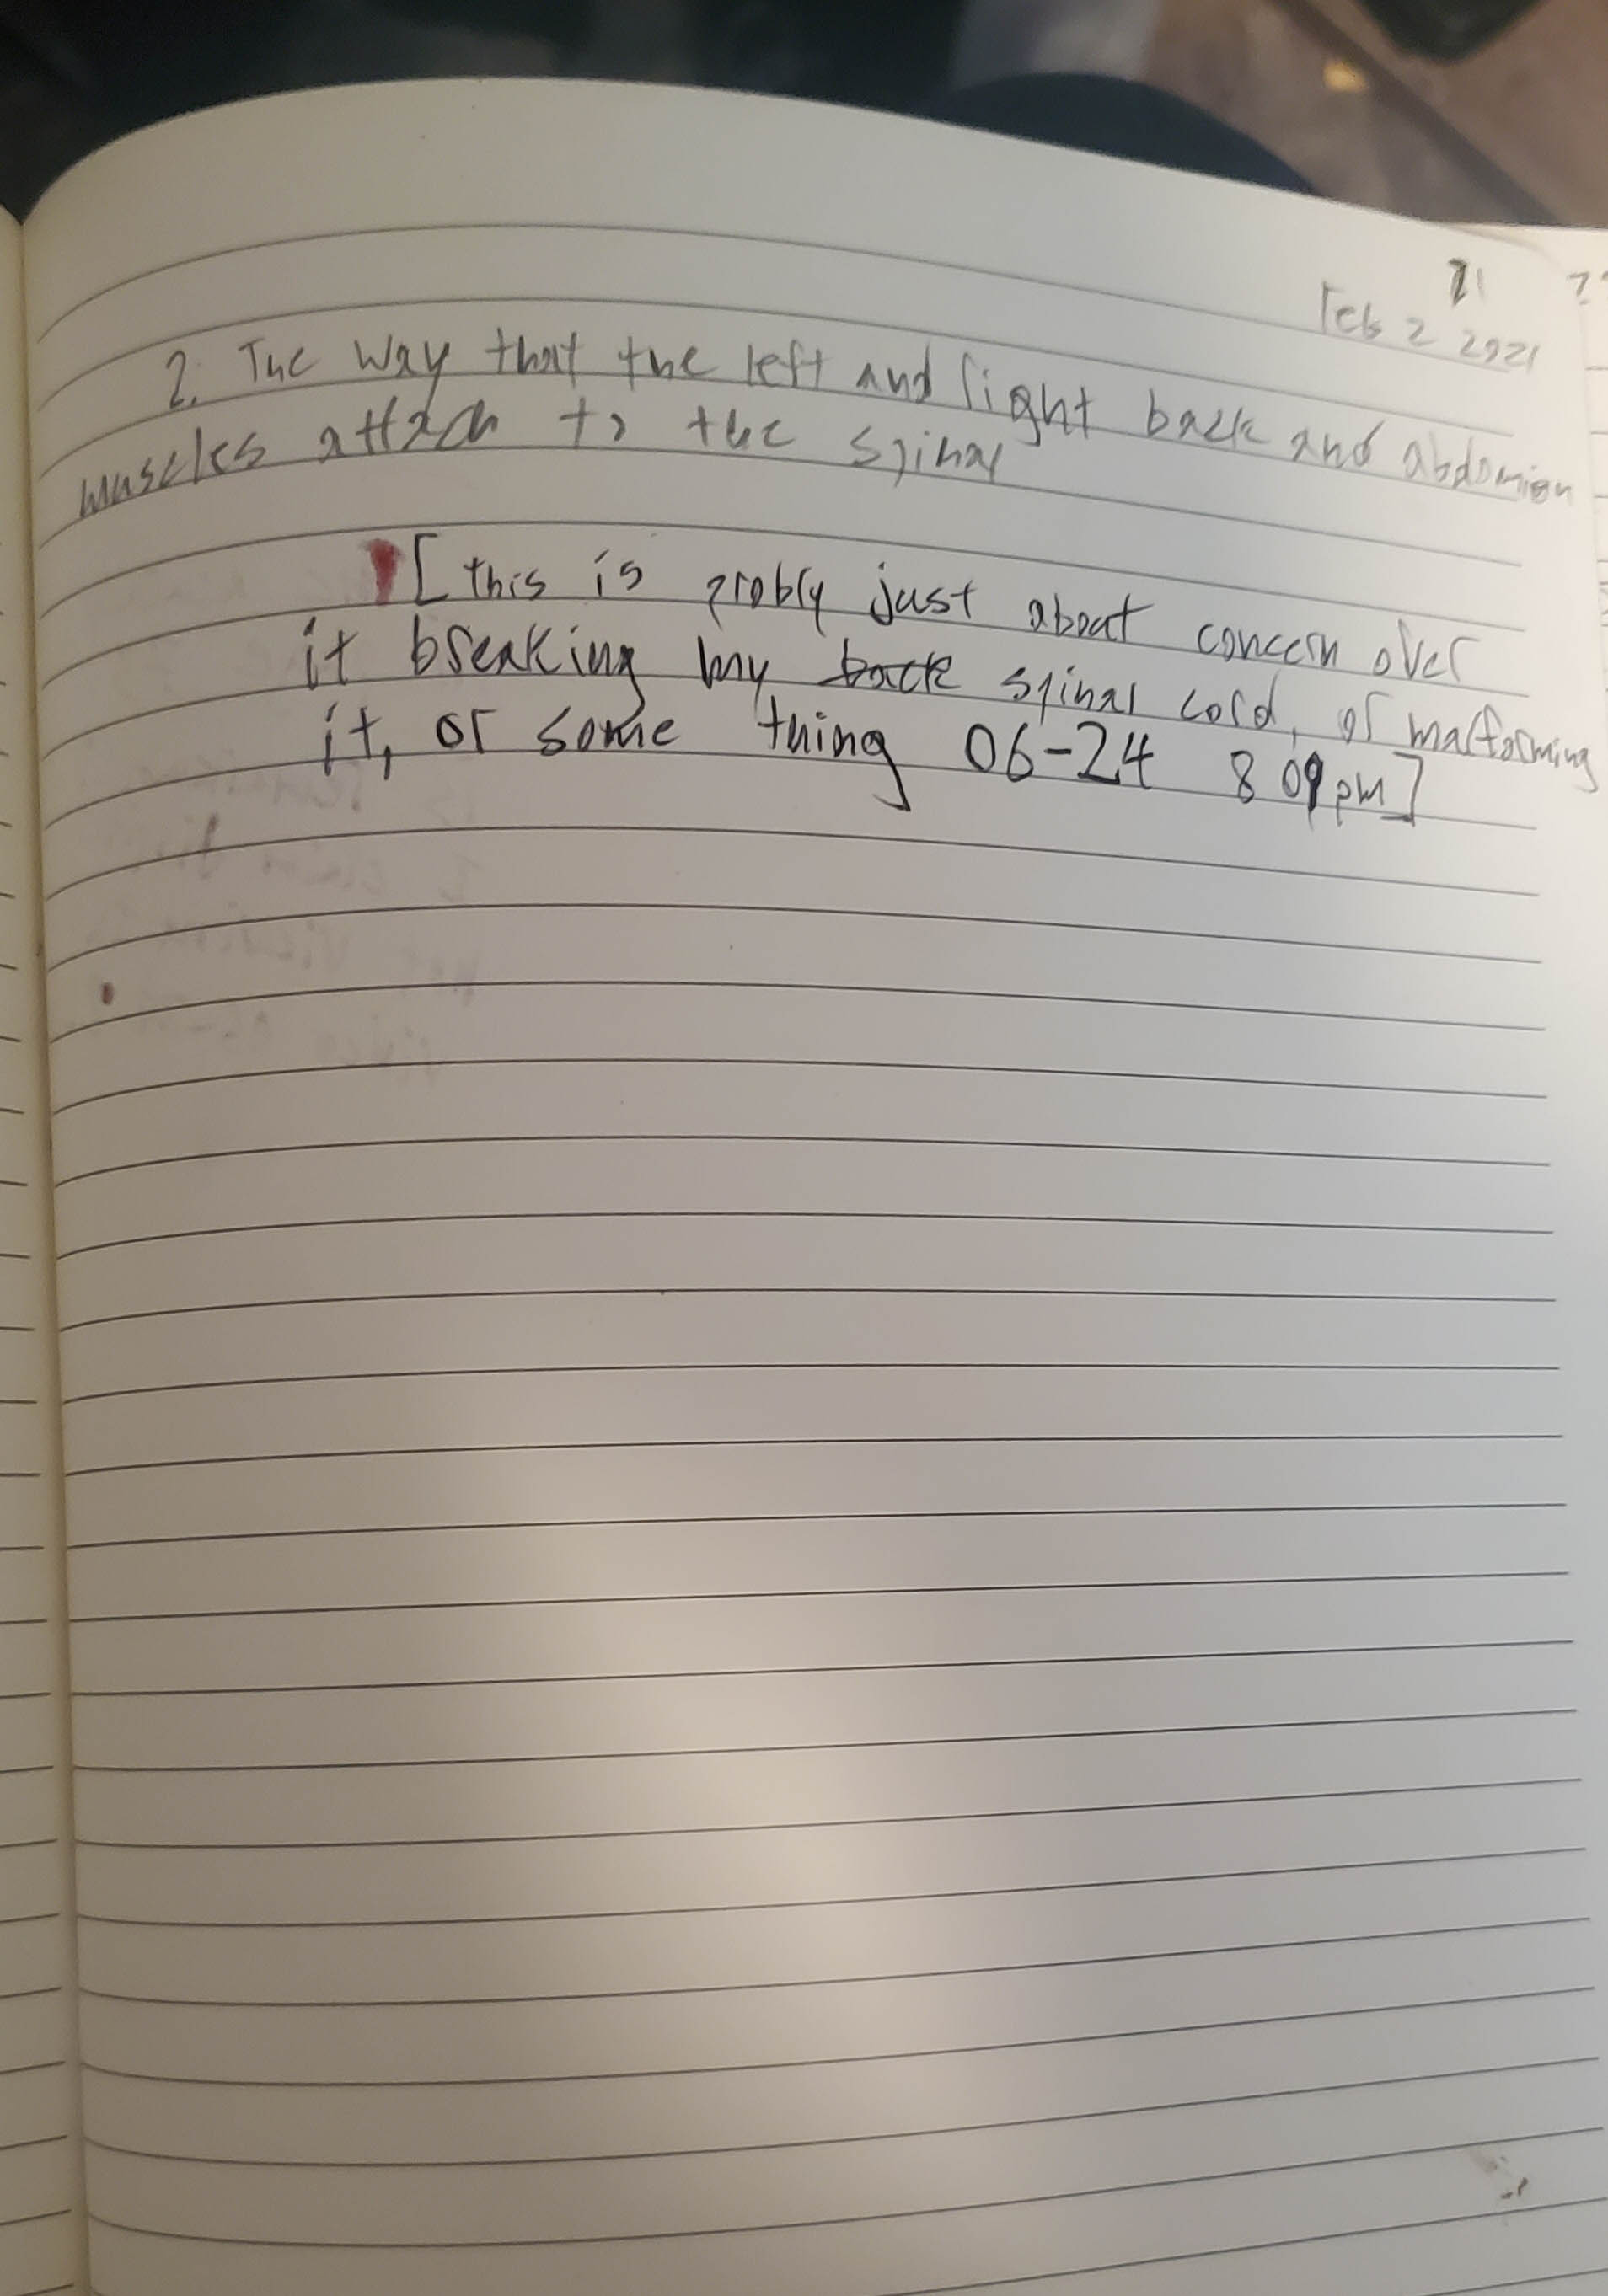 Feb 2 2021
2. The way that the left and right back and abdomien
muscles attach to the spinal
[this is probly just about concern over
it breaking my back spinal cord, or malforming
it, or some thing 06-24 8 09 pm]